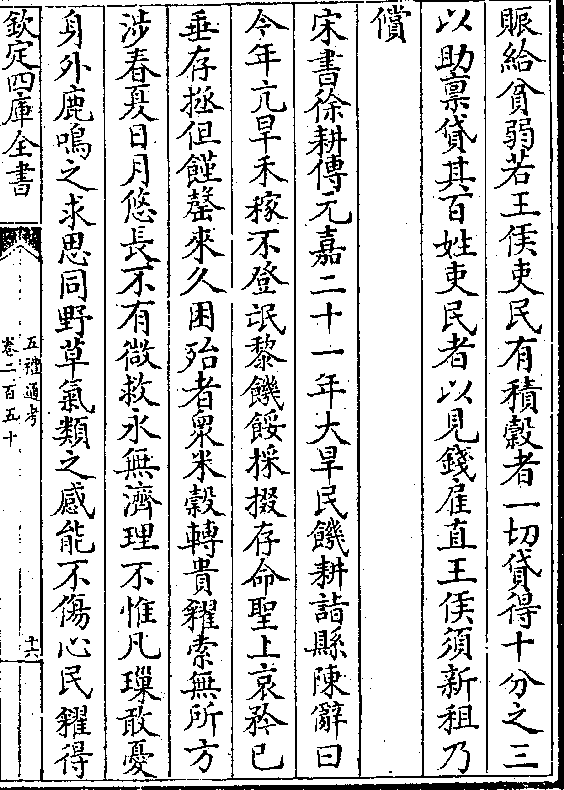 賑給貧弱若王侯吏民有積穀者一切貸得十分之三
以助稟貸其百姓吏民者以見錢雇直王侯須新租乃
償
宋書徐耕傳元嘉二十一年大旱民饑耕詣縣陳辭曰
今年亢旱禾稼不登氓黎饑餒採掇存命聖上哀矜已
垂存拯但饉罄來久困殆者衆米穀轉貴糴索無所方
涉春夏日月悠長不有微救永無濟理不惟凡璅敢憂
身外鹿鳴之求思同野草氣類之感能不傷心民糴得
欽定四庫全書
五禮通考
卷二百五十
十六